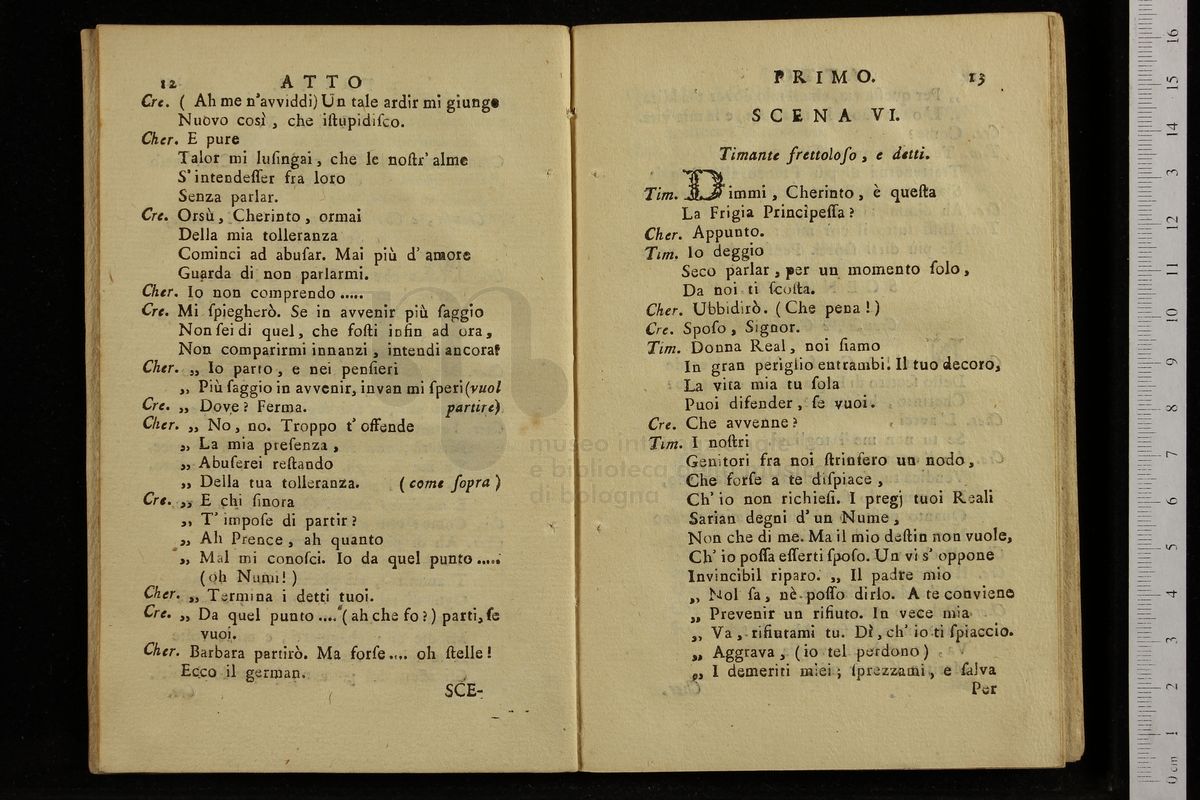 12 ATTO
Cre. ( Ah me n'avviddi) Un tale ardir mi giunge
Nuovo così, che iſtupidiſco.
Cher. E pure
Talor mi luſingai, che le noſtr' alme
S'intendeſſer fra loro
Senza parlar.
Cre. Orsù, Cherinto, ormai
Della mia tolleranza
Cominci ad abuſar. Mai più d' amore
Guarda di non parlarmi.
Cher. Io non comprendo .....
Cre. Mi ſpiegherò. Se in avvenir più ſaggio
Non ſei di quel, che foſti infin ad ora,
Non comparirmi innanzi, intendi ancora?
Cher. „ Io parto, e nei penſieri
„ Più ſaggio in avvenir, invan mi ſperi (vuol
Cre. „ Dove? Ferma. partire)
Cher. „ No, no. Troppo t' offende
„ La mia preſenza,
„ Abuſerei reſtando
„ Della tua tolleranza. (come ſopra)
Cre. „ E chi finora
„ T' impoſe di partir?
„ Ah Prence, ah quanto
„ Mal mi conoſci. Io da quel punto .....
(oh Numi!)
Cher. „ Termina i detti tuoi.
Cre. „ Da quel punto .... (ah che fo?) parti, ſe
vuoi.
Cher. Barbara partirò. Ma forſe .... oh ſtelle!
Ecco il german.
SCE-
PRIMO. 13
SCENA VI.
Timante frettoloſo, e detti.
Tim. Dimmi, Cherinto, è queſta
La Frigia Principeſſa?
Cher. Appunto.
Tim. Io deggio
Seco parlar, per un momento ſolo,
Da noi ti ſcoſta.
Cher. Ubbidirò. (Che pena!)
Cre. Spoſo, Signor.
Tim. Donna Real, noi ſiamo
In gran periglio entrambi. Il tuo decoro,
La vita mia tu ſola
Puoi difender, ſe vuoi.
Cre. Che avvenne?
Tim. I noſtri
Genitori fra noi ſtrinſero un nodo,
Che forſe a te diſpiace,
Ch' io non richieſi. I pregj tuoi Reali
Sarian degni d' un Nume,
Non che di me. Ma il mio deſtin non vuole,
Ch' io poſſa eſſerti ſpoſo. Un vi s' oppone
Invincibil riparo. „ Il padre mio
„ Nol ſa, nè poſſo dirlo. A te conviene
„ Prevenir un rifiuto. In vece mia
„ Va, rifiutami tu. Dì, ch' io ti ſpiaccio.
„ Aggrava, (io tel perdono)
„ I demeriti miei; ſprezzami, e ſalva
Per
museo
e biblioteca
di bologna
0 cm 1 2 3 4 5 6 7 8 9 10 11 12 13 14 15 16